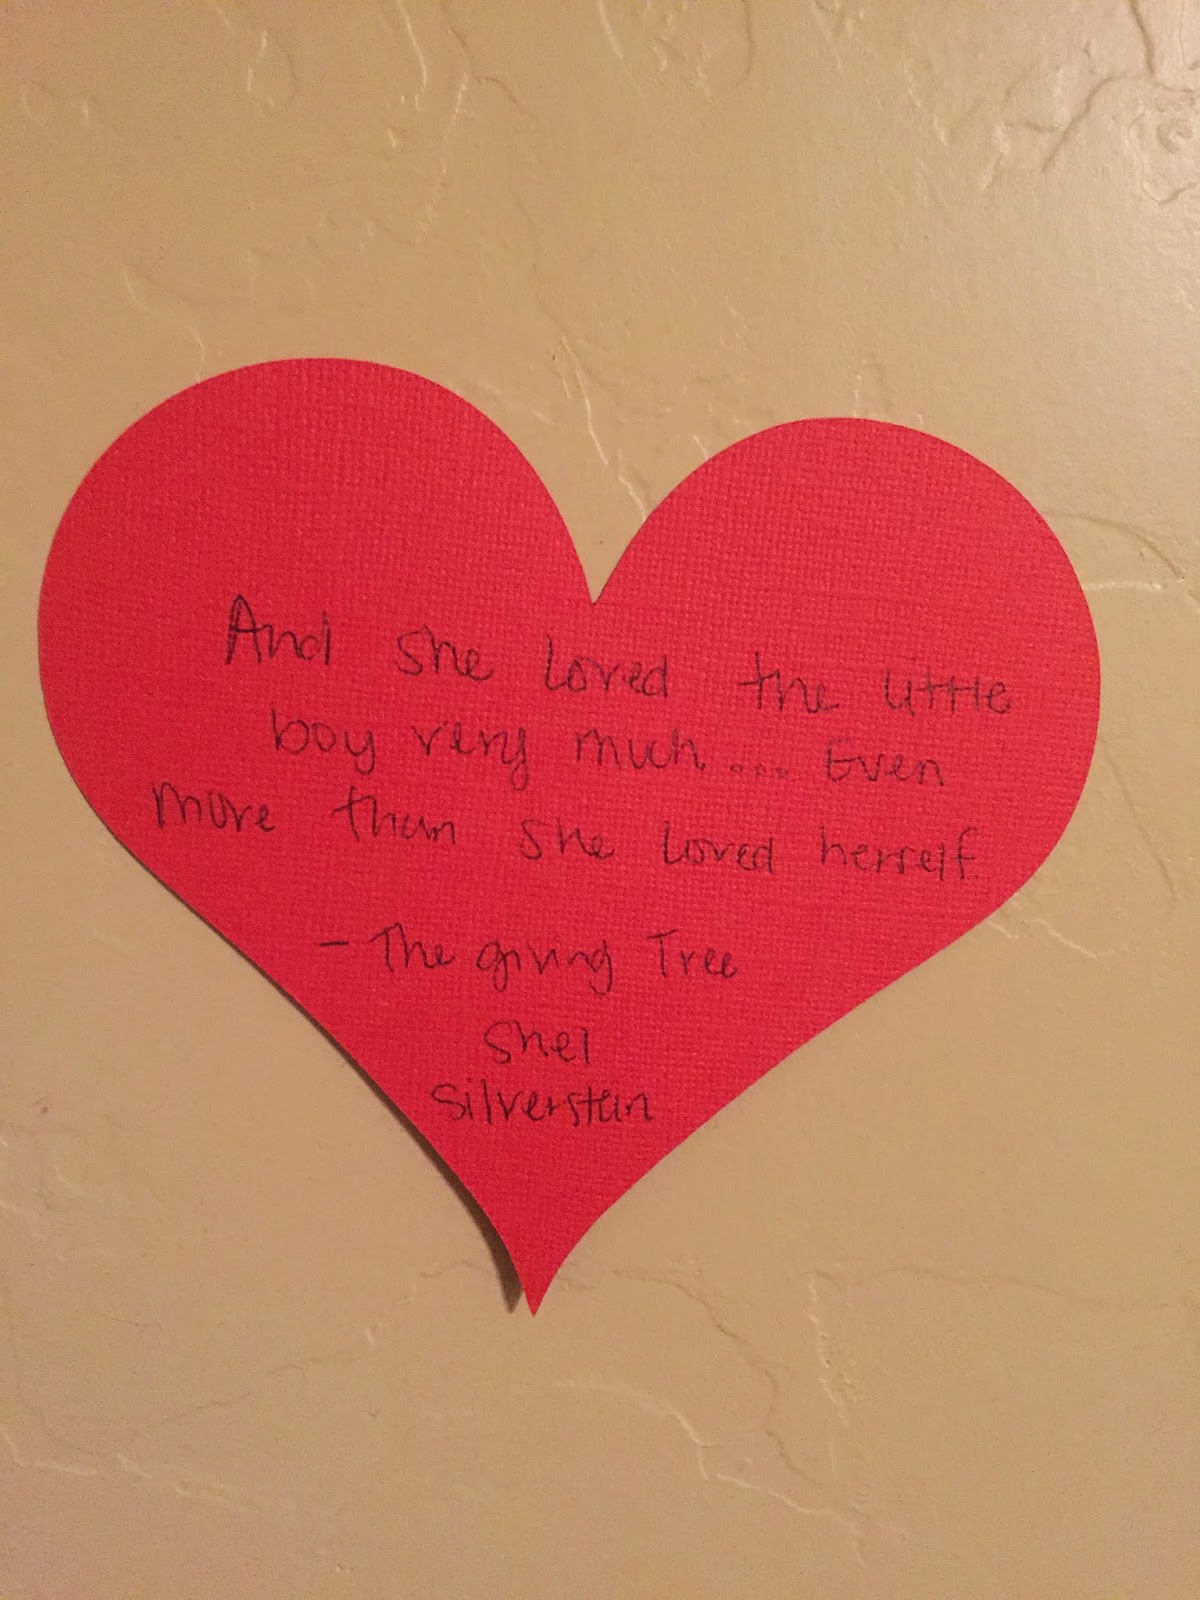 And she loved the little
boy very much.... Even
more than she loved herself.
- The giving Tree
Shel
Silverstein